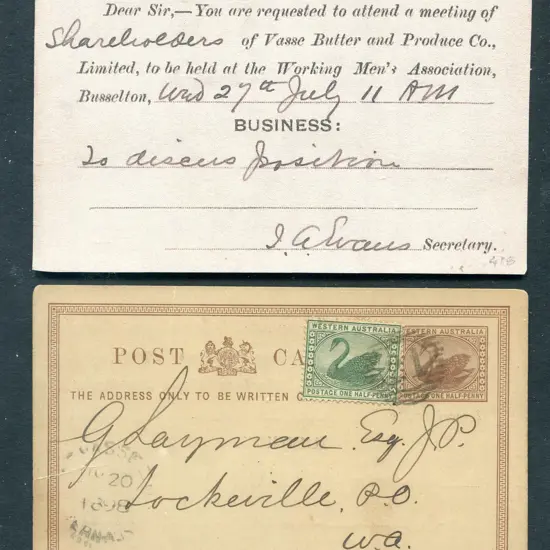 Dear Sir,—You are requested to attend a meeting of
Shareholders of Vasse Butter and Produce Co.,
Limited, to be held at the Working Men's Association,
Busselton, Wed 27th July 11 AM
BUSINESS:
To discuss position
J. A. Evans Secretary.
WESTERN AUSTRALIA
POSTAGE ONE HALF-PENNY
WESTERN AUSTRALIA
POSTAGE ONE HALF-PENNY
POST CA
THE ADDRESS ONLY TO BE WRITTEN
G Layman Esq. J.P.
Lockeville, P.O.
W.A.
20
1898